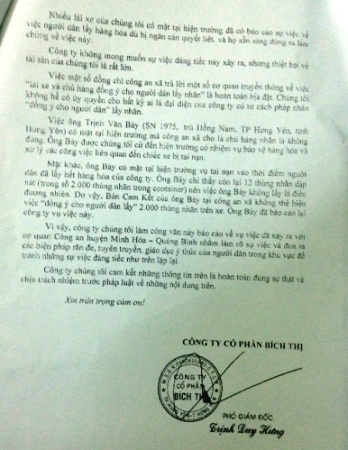 Nhiều lái xe của chúng tôi có mặt tại hiện trường đã có báo cáo sự việc về
việc người dân lấy hàng hóa dù bị ngăn can quyết liệt, và họ sẵn sàng đứng ra làm
chứng về việc này.
Công ty không mong muốn sự việc đáng tiếc này xảy ra, nhưng thiệt hại về
tài sản của chúng tôi là rất lớn.
Việc một số đồng chí công an xã trả lời một số cơ quan truyền thông về việc
"lái xe và chủ hàng đồng ý cho người dân lấy nhãn" là hoàn toàn bịa đặt. Chúng tôi
không hề có ủy quyền cho bất kỳ ai là đại diện của công ty có tư cách pháp nhân
"đồng ý cho người dân" lấy nhãn.
Việc ông Trịnh Văn Bảy (SN 1975, trú Hồng Nam, TP Hưng Yên, tỉnh
Hưng Yên) có mặt tại hiện trường mà công an xã cho là chủ hàng nhãn là không
đúng. Ông Bảy được chúng tôi cử đến hiện trường có nhiệm vụ bảo vệ hàng hóa và
xử lý các công việc liên quan đến chiếc xe bị tai nạn.
Mặc khác, ông Bảy có mặt tại hiện trường vụ tai nạn vào thời điểm người
dân đã lấy hết hàng hóa của công ty. Ông Bảy chỉ thấy còn lại 12 thùng nhãn dập
nát (trong số 2.000 thùng nhãn trong container) nên việc ông Bảy không lấy là điều
đương nhiên. Do vậy, Bản Cam Kết của ông Bảy tại công an xã không thể hiện
việc "đồng ý cho người dân lấy" 2.000 thùng nhãn trên xe. Ông Bảy đã báo cáo lại
công ty vụ việc này.
Vì vậy, công ty chúng tôi làm công văn này báo cáo về vụ việc đã xảy ra với
cơ quan Công an huyện Minh Hóa – Quảng Bình nhằm làm rõ sự việc và đưa ra
các biện pháp răn đe, tuyên truyền, giáo dục ý thức của người dân trong khu vực để
tránh những sự việc đáng tiếc như trên lặp lại.
Công ty chúng tôi cam kết những thông tin trên là hoàn toàn đúng sự thật và
chịu trách nhiệm trước pháp luật về những nội dung trên.
Xin trân trọng cảm ơn!
CÔNG TY CỔ PHẦN BÍCH THỊ
CÔNG TY
CỔ PHẦN
BÍCH THỊ
PHÓ GIÁM ĐỐC
Trịnh Duy Hưng